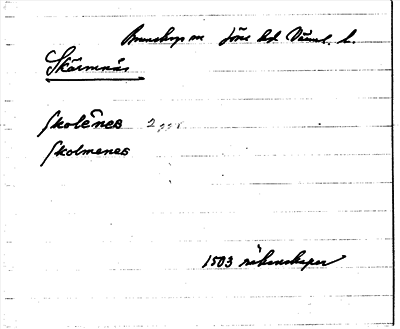 Brunskogs sn Jösse hd Värml. l.
Skärmnäs
Skolēnes
Skolmenes
1503 räkenskaper